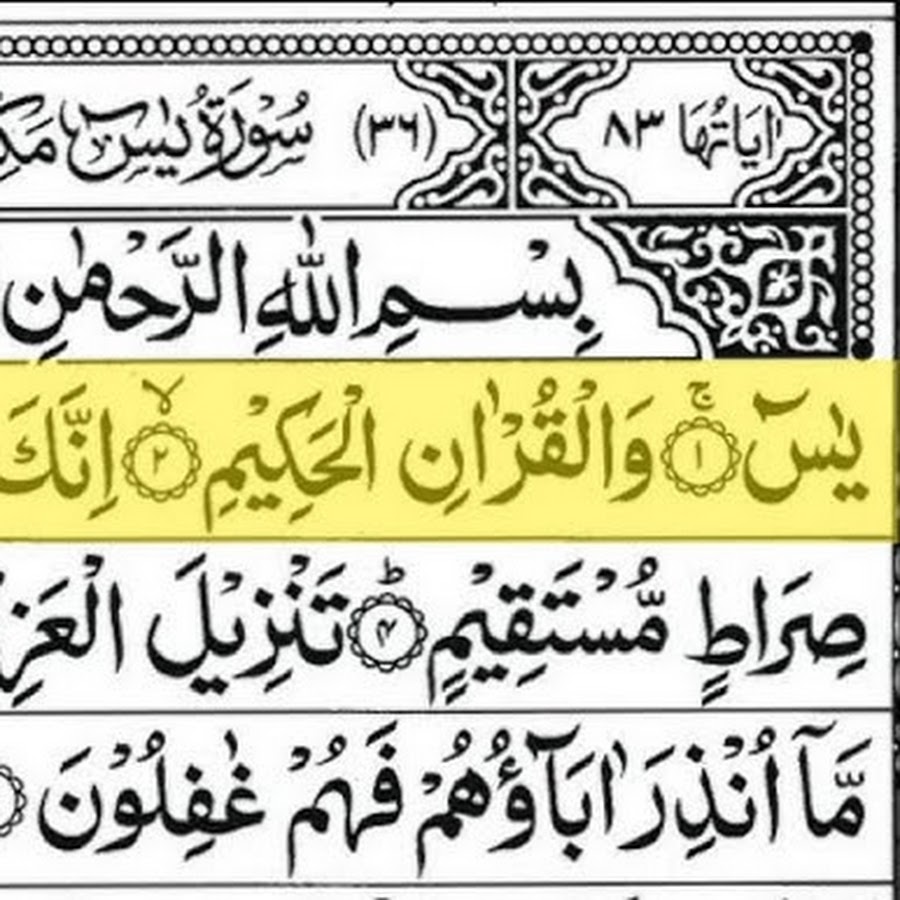 اٰيَاتُهَا ٨٣ (٣٦) سُوْرَةُ يٰسٓ
بِسْمِ اللّٰهِ الرَّحْمٰنِ
يٰسٓ ۚ ﴿١﴾ وَالْقُرْاٰنِ الْحَكِيْمِ ۙ ﴿٢﴾ اِنَّكَ
صِرَاطٍ مُّسْتَقِيْمٍ ؕ ﴿۴﴾ تَنْزِيْلَ
مَّاۤ اُنْذِرَ اٰبَآؤُهُمْ فَهُمْ غٰفِلُوْنَ